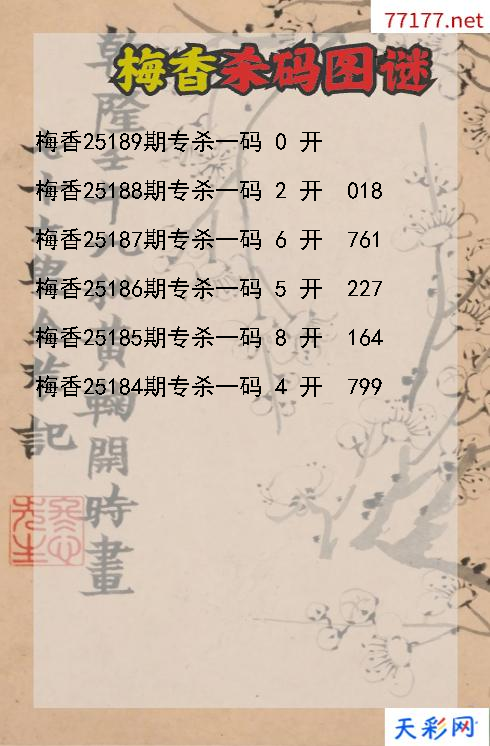 77177.net
梅香杀码图谜
梅香25189期专杀一码 0 开
梅香25188期专杀一码 2 开 018
梅香25187期专杀一码 6 开 761
梅香25186期专杀一码 5 开 227
梅香25185期专杀一码 8 开 164
梅香25184期专杀一码 4 开 799
開時畫
記
天彩网